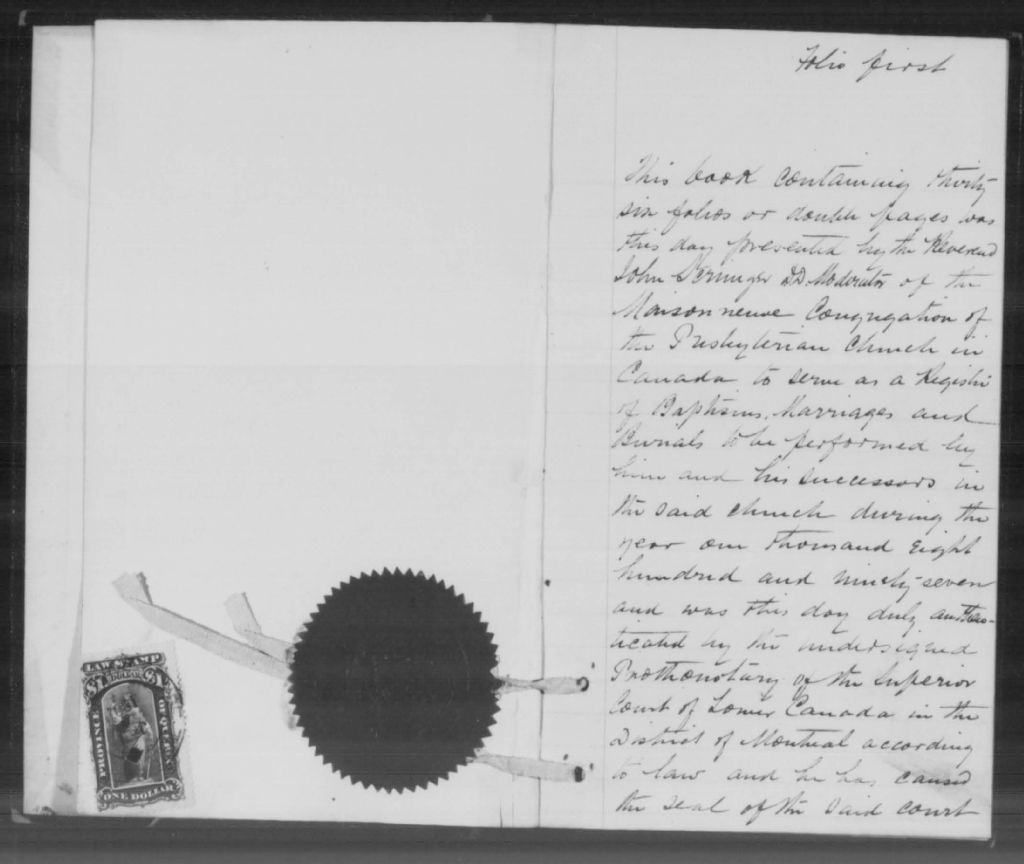 Folio first
This book containing thirty
six folios or double pages was
this day presented by the Reverend
John Scrimger D.D. Moderator of the
Maisonneuve Congregation of
the Presbyterian Church in
Canada to serve as a Register
of Baptisms, Marriages and
Burials to be performed by
him and his successors in
the said church during the
year one thousand eight
hundred and ninety-seven
and was this day duly authen-
ticated by the undersigned
Prothonotary of the Superior
Court of Lower Canada in the
District of Montreal according
to law and he has caused
the seal of the said court
LAW STAMP
PROVINCE
OF QUEBEC
ONE DOLLAR